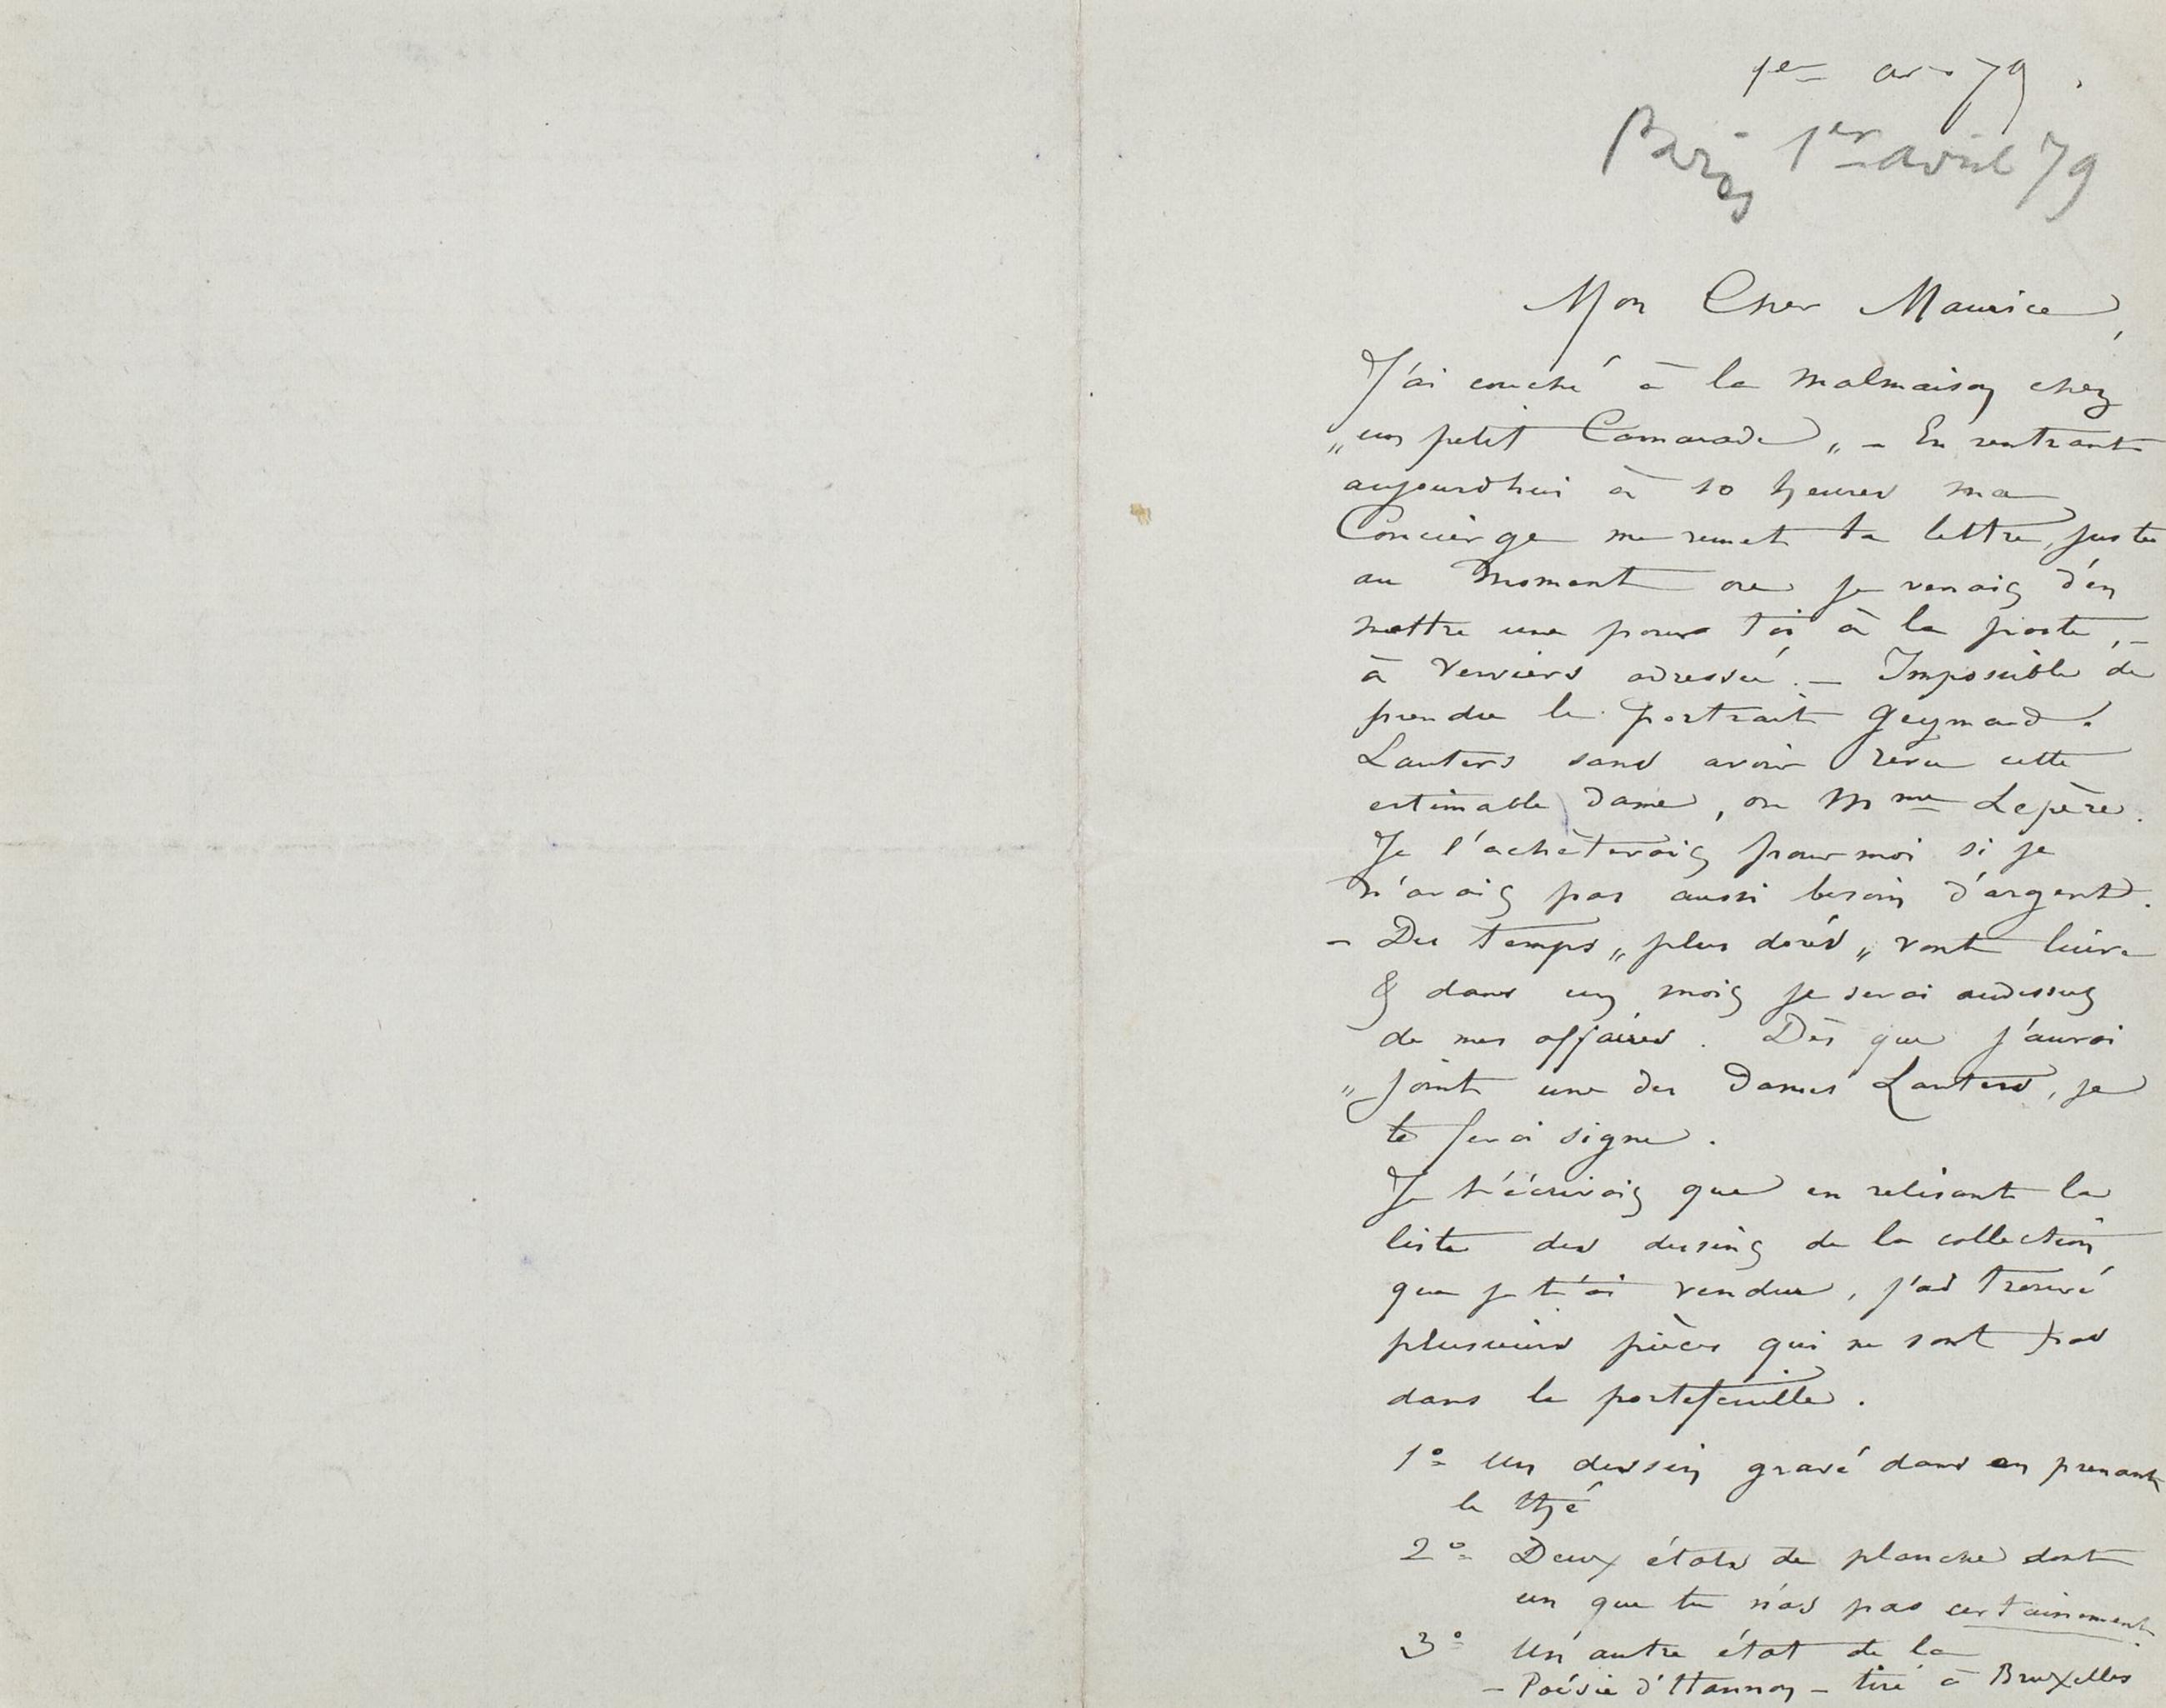 1er av 79.
Paris 1er avril 79
Mon Cher Maurice,
J'ai couché à la Malmaison chez
„un petit Camarade„ – En rentrant
aujourdhui à 10 heures ma
Concierge me remet ta lettre, juste
au moment ou je venais d'en
mettre une pour toi à la poste, –
à Verviers adressée. – Impossible de
prendre le portrait Geymard.
Lauters sans avoir revu cette
estimable dame, ou Mme Lepère.
Je l'achèterais pour moi si je
n'avais pas aussi besoin d'argent.
– Des temps „plus dorés„ vont luire
& dans un mois je serai audessus
de mes affaires. Dès que j'aurai
„joint une des Dames Lauters, je
te ferai signe.
Je t'écrivais que en relisant la
liste des dessins de la collection
que je t'ai vendue, j'ai trouvé
plusieurs pièces qui ne sont pas
dans le portefeuille.
1° Un dessin gravé dans en prenant
le thé
2° Deux états de planche dont
un que tu n'as pas certainement.
3° Un autre état de la
– Poésie d'Hannon – tiré à Bruxelles